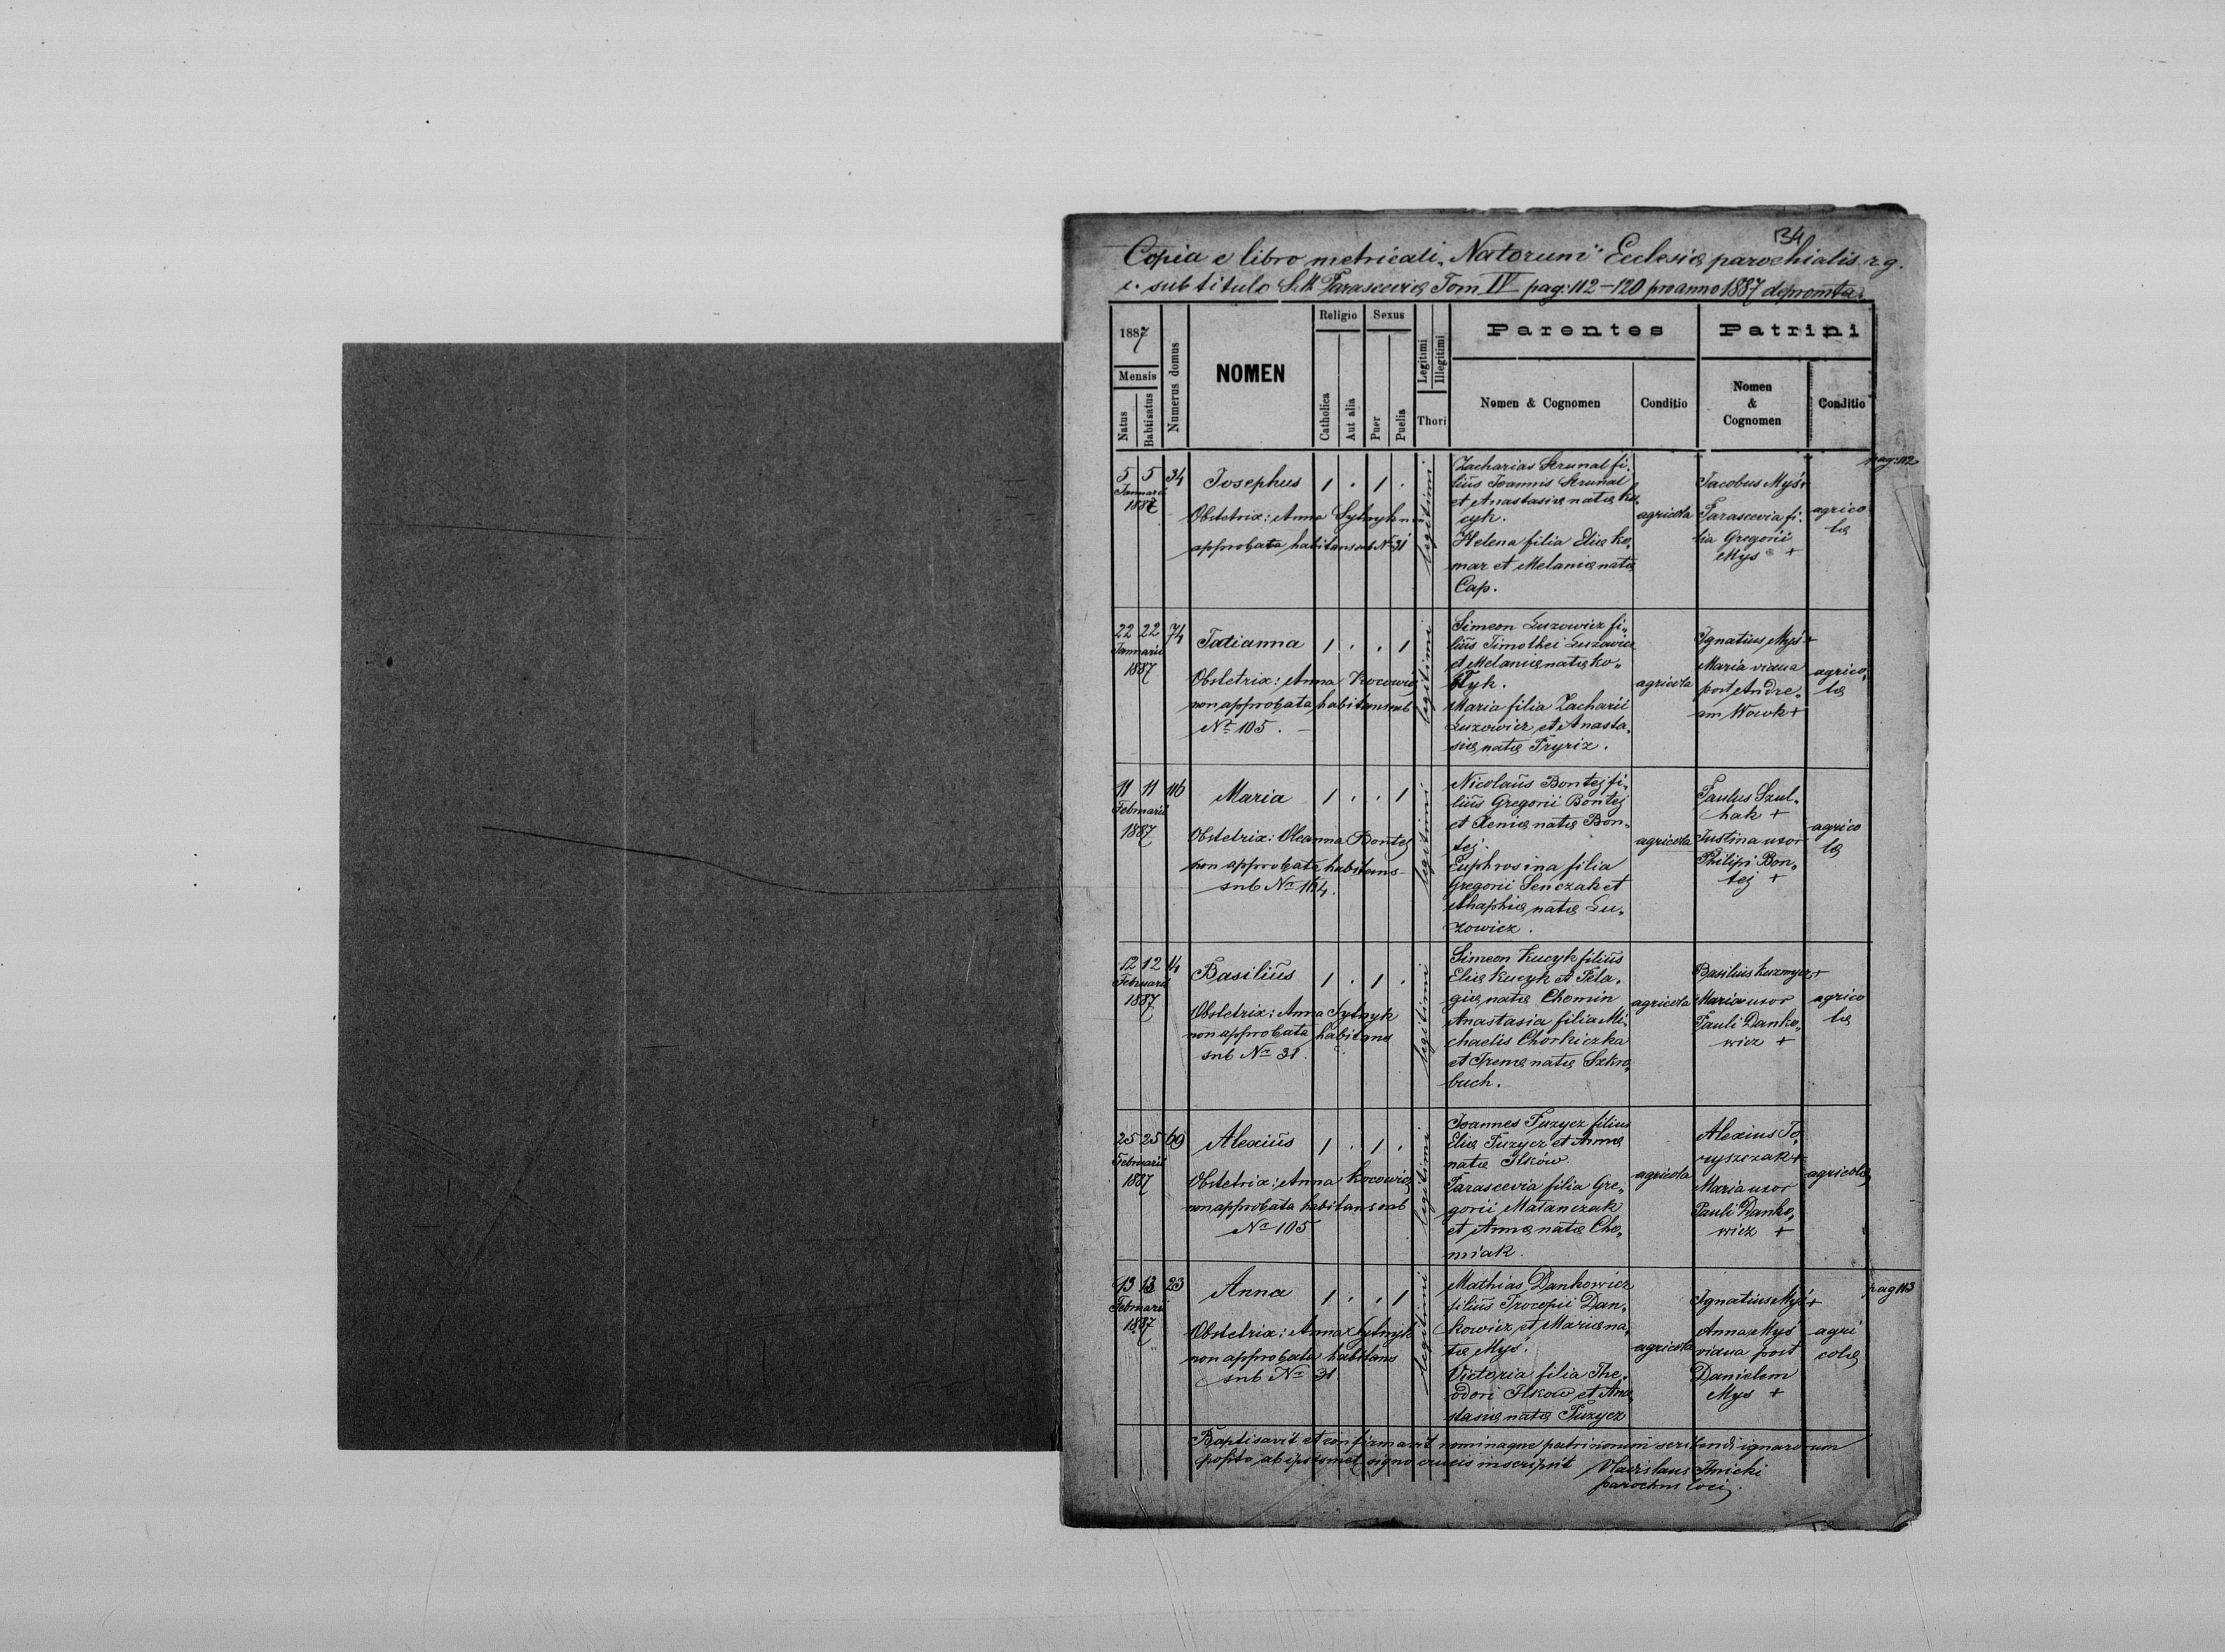 134
Copia e libro metricali „Natorum" Ecclesiæ parochialis r. g.
c. sub titulo Sctæ Parasceviæ Tom IV pag: 112-120 pro anno 1887 depromta.
1887
Mensis
Natus
Babtisatus
Numerus domus
NOMEN
Religio
Catholica
Aut alia
Sexus
Puer
Puella
Legitimi
Illegitimi
Thori
Parentes
Nomen & Cognomen
Conditio
Patrini
Nomen
&
Cognomen
Conditio
pag: 112
5 5 34
Januarii
1887
Josephus
1 . 1 .
Obstetrix: Anna Sytnyk
approbata habitans sub No 31
legitimi
Zacharias Strunal fi„
lius Joannis Strunal
et Anastasiæ natæ
cyk.
Helena filia Eliæ Ko„
mar et Melaniæ natæ
Cap.
agricola
Jacobus Myś +
Parascevia fi„
lia Gregorii
Mys +
agrico
læ
22 22 74
Januarii
1887
Tatianna
1 . . 1
Obstetrix: Anna Kocowicz
non approbata habitans sub
No 105.
legitimi
Simeon Luzowicz fi„
lius Timothei Luzowicz
et Melaniæ natæ Ko„
styk.
Maria filia Zacharii
Luzowicz et Anasta„
siæ natæ Pryriz.
agricola
Ignatius Myś +
Maria vidua
post Andre„
am Wowk +
agrico„
læ
11 11 116
Februarii
1887
Maria
1 . . 1
Obstetrix: Oleanna Bontej
non approbata habitans
sub No 164.
legitimi
Nicolaus Bontej fi„
lius Gregorii Bontej
et Xeniæ natæ Bon„
tej.
Euphrosina filia
Gregorii Seńczak et
Ahaphiæ natæ Lu„
zowicz.
agricola
Paulus Szul„
hak +
Justina uxor
Philipi Bon„
tej +
agrico
læ
12 12 14
Februarii
1887
Basilius
1 . 1 .
Obstetrix: Anna Sytnyk
non approbata habitans
sub No 31.
legitimi
Simeon Kucyk filius
Eliæ Kucyk et Pela„
giæ natæ Chomin
Anastasia filia Mi„
chaelis Chorkiczka
et Irenæ natæ Szkro„
buch.
agricola
Basilius Kuzmycz +
Maria uxor
Pauli Danko„
wicz +
agrico
læ
25 25 69
Februarii
1887
Alexius
1 . 1 .
Obstetrix: Anna Kocowicz
non approbata habitans sub
No 105
legitimi
Joannes Puzycz filius
Eliæ Puzycz et Annæ
natæ Ilków
Parascevia filia Gre„
gorii Matanczak
et Annæ natæ Cho„
miak.
agricola
Alexius To„
ryszczak +
Maria uxor
Pauli Danko„
wicz +
agricolæ
pag 113
13 13 23
Februarii
1887
Anna
1 . . 1
Obstetrix: Anna Sytnyk
non approbata habitans
sub No 31
legitimi
Mathias Dankowicz
filius Procopii Dan„
kowicz et Mariæ na„
tæ Myś.
Victoria filia The„
odori Ilkow et Ana„
stasiæ natæ Puzycz
agricola
Ignatius Myś +
Anna Myś
vidua post
Danielem
Mys +
agri
colæ
Baptisavit et confirmavit nominaque patrinorum scribendi ignarorum
posito ab ipsismet signo crucis inscripsit Vladislaus Ilnicki
parochus loci.